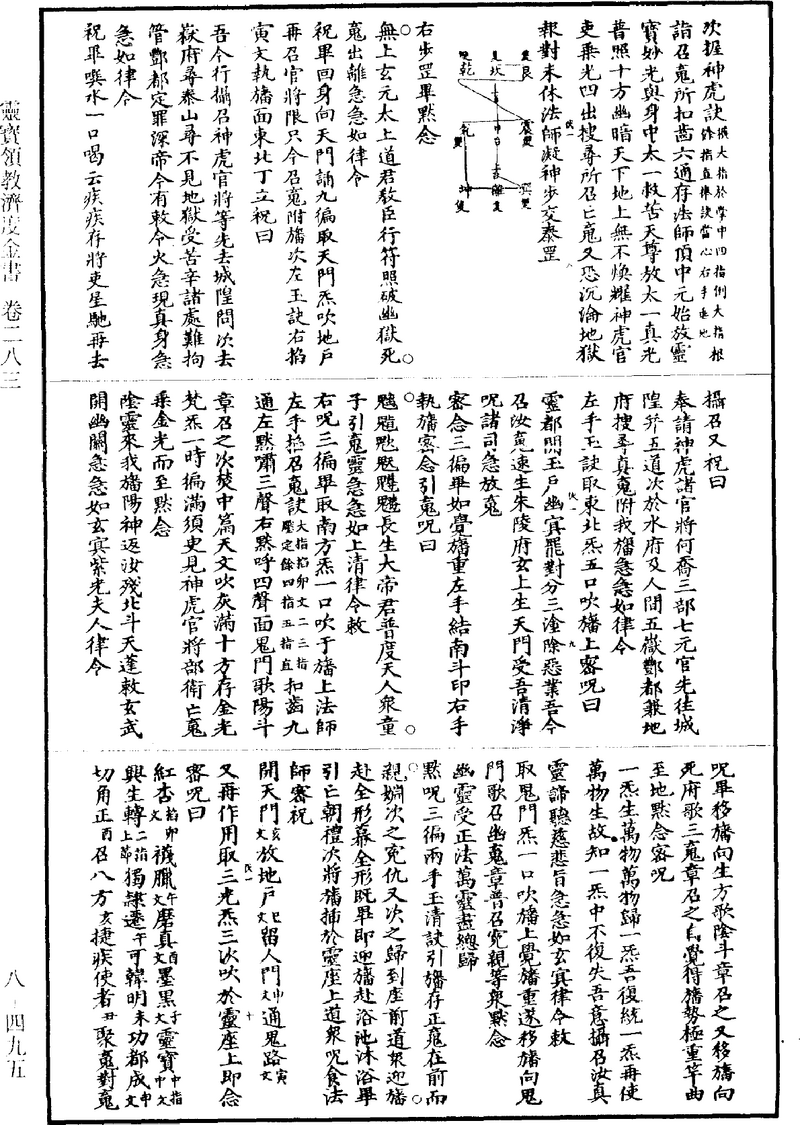 次握神虎訣掇大指於掌中四指倒大指根餘指直捧訣當心右手垂地
詣召䰟所扣齒六通存法師頂中元始放靈
寶妙光與身中太一救苦天尊放太一真光
普照十方幽暗天下地上無不煥耀神虎官
吏乗光四出搜尋所召亡䰟又恐沉淪地獄
報對未休法師凝神步交泰罡
乾
坎
艮
震
中
離
巽
坤
右步罡畢黙念
無上玄元太上道君教臣行符照破幽獄死
䰟出離急急如律令
祝畢回身向天門誦九徧取天門炁吹地戸
再召官將限只今召䰟附旛次左玉訣右掐
寅文執旛面東北丁立祝曰
吾今行攝召神虎官將等先去城隍問次去
嶽府尋泰山尋不見地獄受苦辛諸處難拘
管酆都定罪深帝今有敕令火急現真身急
急如律令
祝畢噀水一口喝云疾疾存將吏星馳再去
攝召又祝曰
奉請神虎諸官將何喬三部七元官先往城
隍并五道次於水府及人間五嶽酆都㪅地
府搜尋真䰟附我旛急急如律令
左手玉訣取東北炁五口吹旛上密呪曰
靈都開玉戸幽冥罷對分三塗除惡業吾今
召汝䰟速生朱陵府玄上生天門受吾清淨
呪諸司急放䰟
密念三徧畢如覺旛重左手結南斗印右手
執旛密念引䰟呪曰
長生大帝君普度天人衆童
子引䰟靈急急如上清律令敕
右呪三徧畢取南方炁一口吹于旛上法師
左手掐召䰟訣大指掐卯文二三指壓定餘四指五指直扣齒九
通左黙嘯三聲右黙呼四聲面鬼門歌陽斗
章召之次焚中篇天文吹灰滿十方存金光
梵炁一時徧滿須史見神虎官將部衛亡䰟
乗金光而至黙念
陰靈來我旛陽神返汝殘北斗天蓬敕玄武
開幽關急急如玄冥紫光夫人律令
呪畢移旛向生方歌陰斗章召之又移旛向
死府歌三䰟章召之自覺得旛勢極重竿曲
至地黙念密呪
一炁生萬物萬物歸一炁吾復統一炁再使
萬物生故知一炁中不復失吾意攝召汝真
靈諦聽慈悲旨急急如玄冥律令敕
取鬼門炁一口吹旛上覺旛重遂移旛向鬼
門歌召幽䰟章普召寃親等衆黙念
幽靈受正法萬靈盡總歸
黙呪三徧兩手玉清訣引旛存正䰟在前而
親婣次之寃仇又次之歸到座前道衆迎旛
赴全形幕全形既畢即迎旛赴浴池沐浴畢
引亡朝禮次將旛插於靈座上道衆呪食法
師密祝
開天門亥文放地戸巳文留人門申文通鬼路寅文
又再作用取三光炁三次吹於靈座上即念
密呪曰
紅杏掐卯文襪臘午文磨真酉文墨黑子文靈寶中指中文
興生轉二指上節獨隸遷午可韓明未功都成申中文
切角正酉召八方亥捷疾使者丑聚䰟對䰟
靈寶領教濟度金書 卷二八三
八–四九五